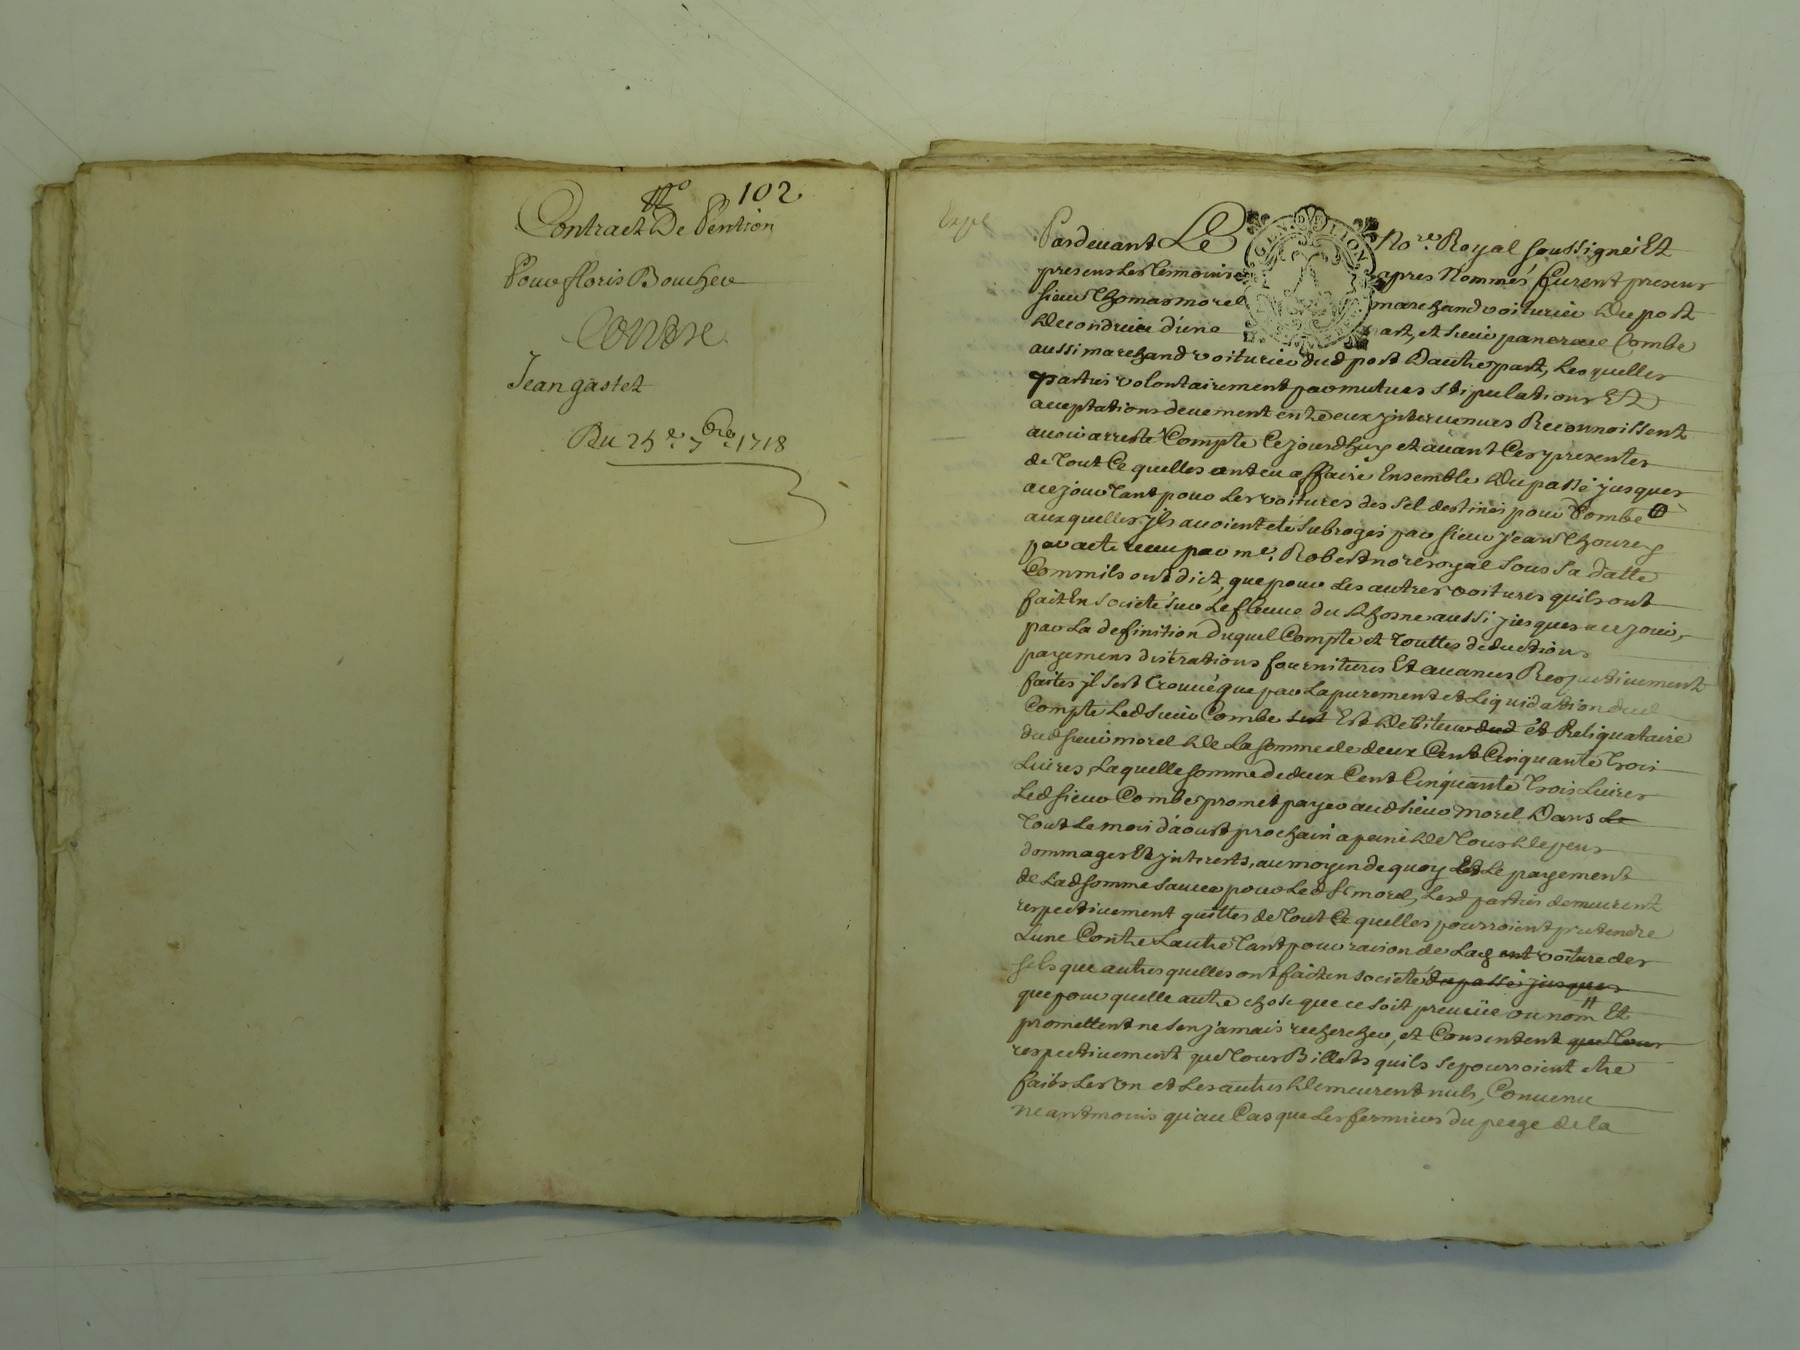 No 102
Contract De Pention
Pour floris Boucher
Contre
Jean gastet
Du 25e 7bre 1718
Expe
Pardevant Le No.re Royal soussigné Et
presens Les temoins apres Nommés furent presens
sieur Thomas morel marchand voiturier du port
de condrieu d'une part, et sieur pancrace Combe
aussi marchand voiturier dud port D'autre part, Lesquelles
parties volontairement par mutues stipulations Et
acceptations deuement entre eux jntervenues Reconnoissent
avoir arresté Compte Cejourdhuy et avant Ces presentes
de tout Ce quelles ont eu affaire Ensemble du passé jusques
a ce jour tant pour Les voitures des sel destinés pour
aux quelles jls avoient eté subrogés par sieur jean
par acte receu par me. Robert no.re royal sous sa datte
Comm ils ont dict, que pour Les autres voitures quils ont
fait En societé sur Le fleuve du Rhosne aussi jusques a ce jour,
par La definition duquel Compte et touttes deductions
payemens distrations fournitures Et avances Respectivement
faites jl sest trouvé que par Lapurement et Liquidation dud
Compte Led sieur Combe Est debiteur dud et Reliquataire
dud sieur morel de La somme de deux Cent Cinquante trois
Livres, Laquelle somme de deux Cent Cinquante trois Livres
Led sieur Combe promet payer aud sieur morel Dans Le
tout Le mois d'aoust prochain a peine de tous depens
dommages Et jnterests, au moyen de quoy Et Le payement
de Lad somme sauve pour Led Sr morel, Lesd parties demeurent
respectivement quittes de tout Ce quelles pourroient pretendre
Lune Contre Lautre tant pour raison de Lad voiture des
sels que autres quelles ont fait en societé du passé jusques
que pour quelle autre chose que ce soit preveüe ou non Et
promettent ne sen jamais rechercher, et Consentent que tous
respectivement que tous Billets quils se pourroient etre
faits Les un et Les autres demeurent nuls, Convenu
neantmoins qu'au Cas que Les fermiers du peage de la